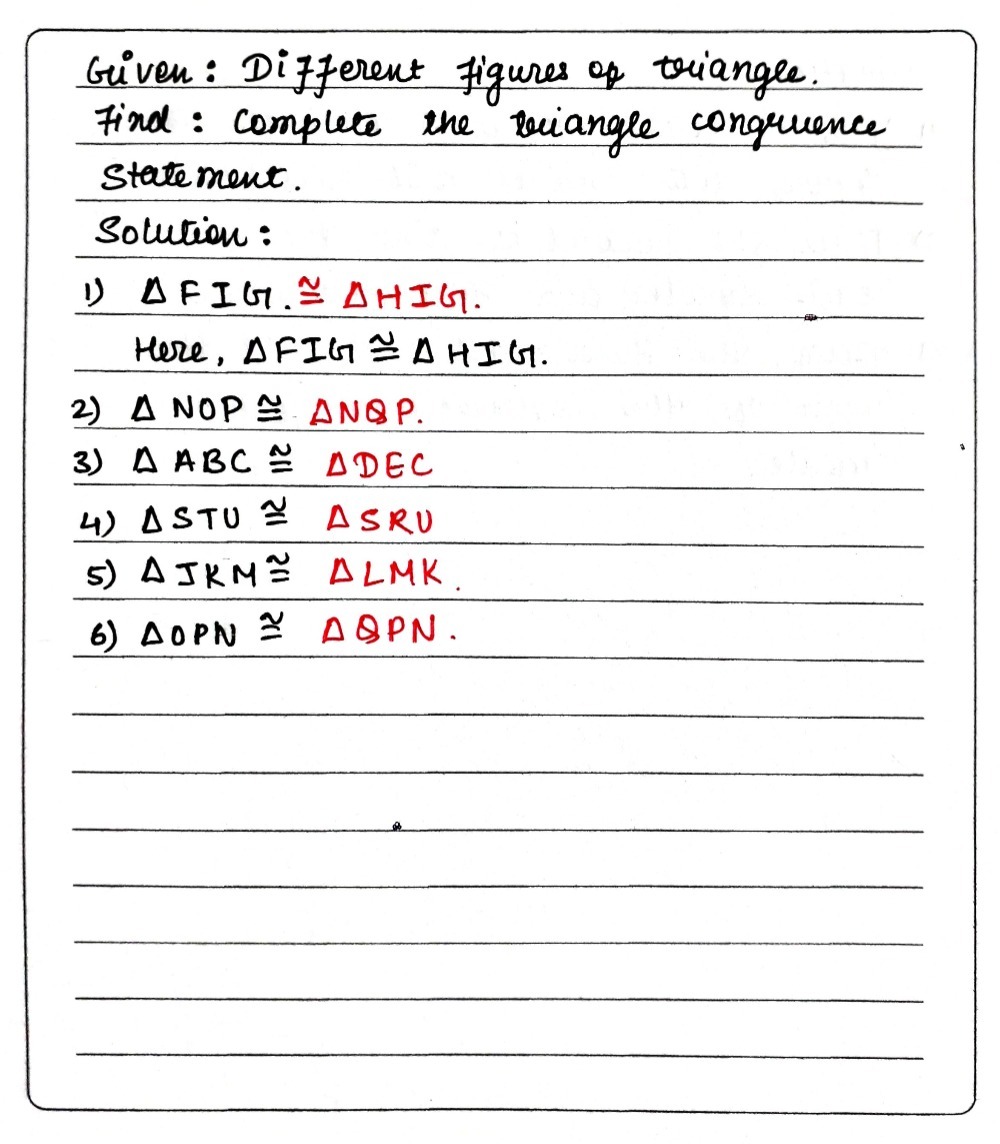 Given : Different figures of triangle.
Find : Complete the triangle congruence
Statement.
Solution :
1) Δ FIG. ≅ Δ HIG.
Here, ΔFIG ≅ Δ HIG.
2) Δ NOP ≅ ΔNQP.
3) Δ ABC ≅ ΔDEC
4) ΔSTU ≅ ΔSRU
5) Δ JKM ≅ ΔLMK.
6) ΔOPN ≅ ΔQPN.